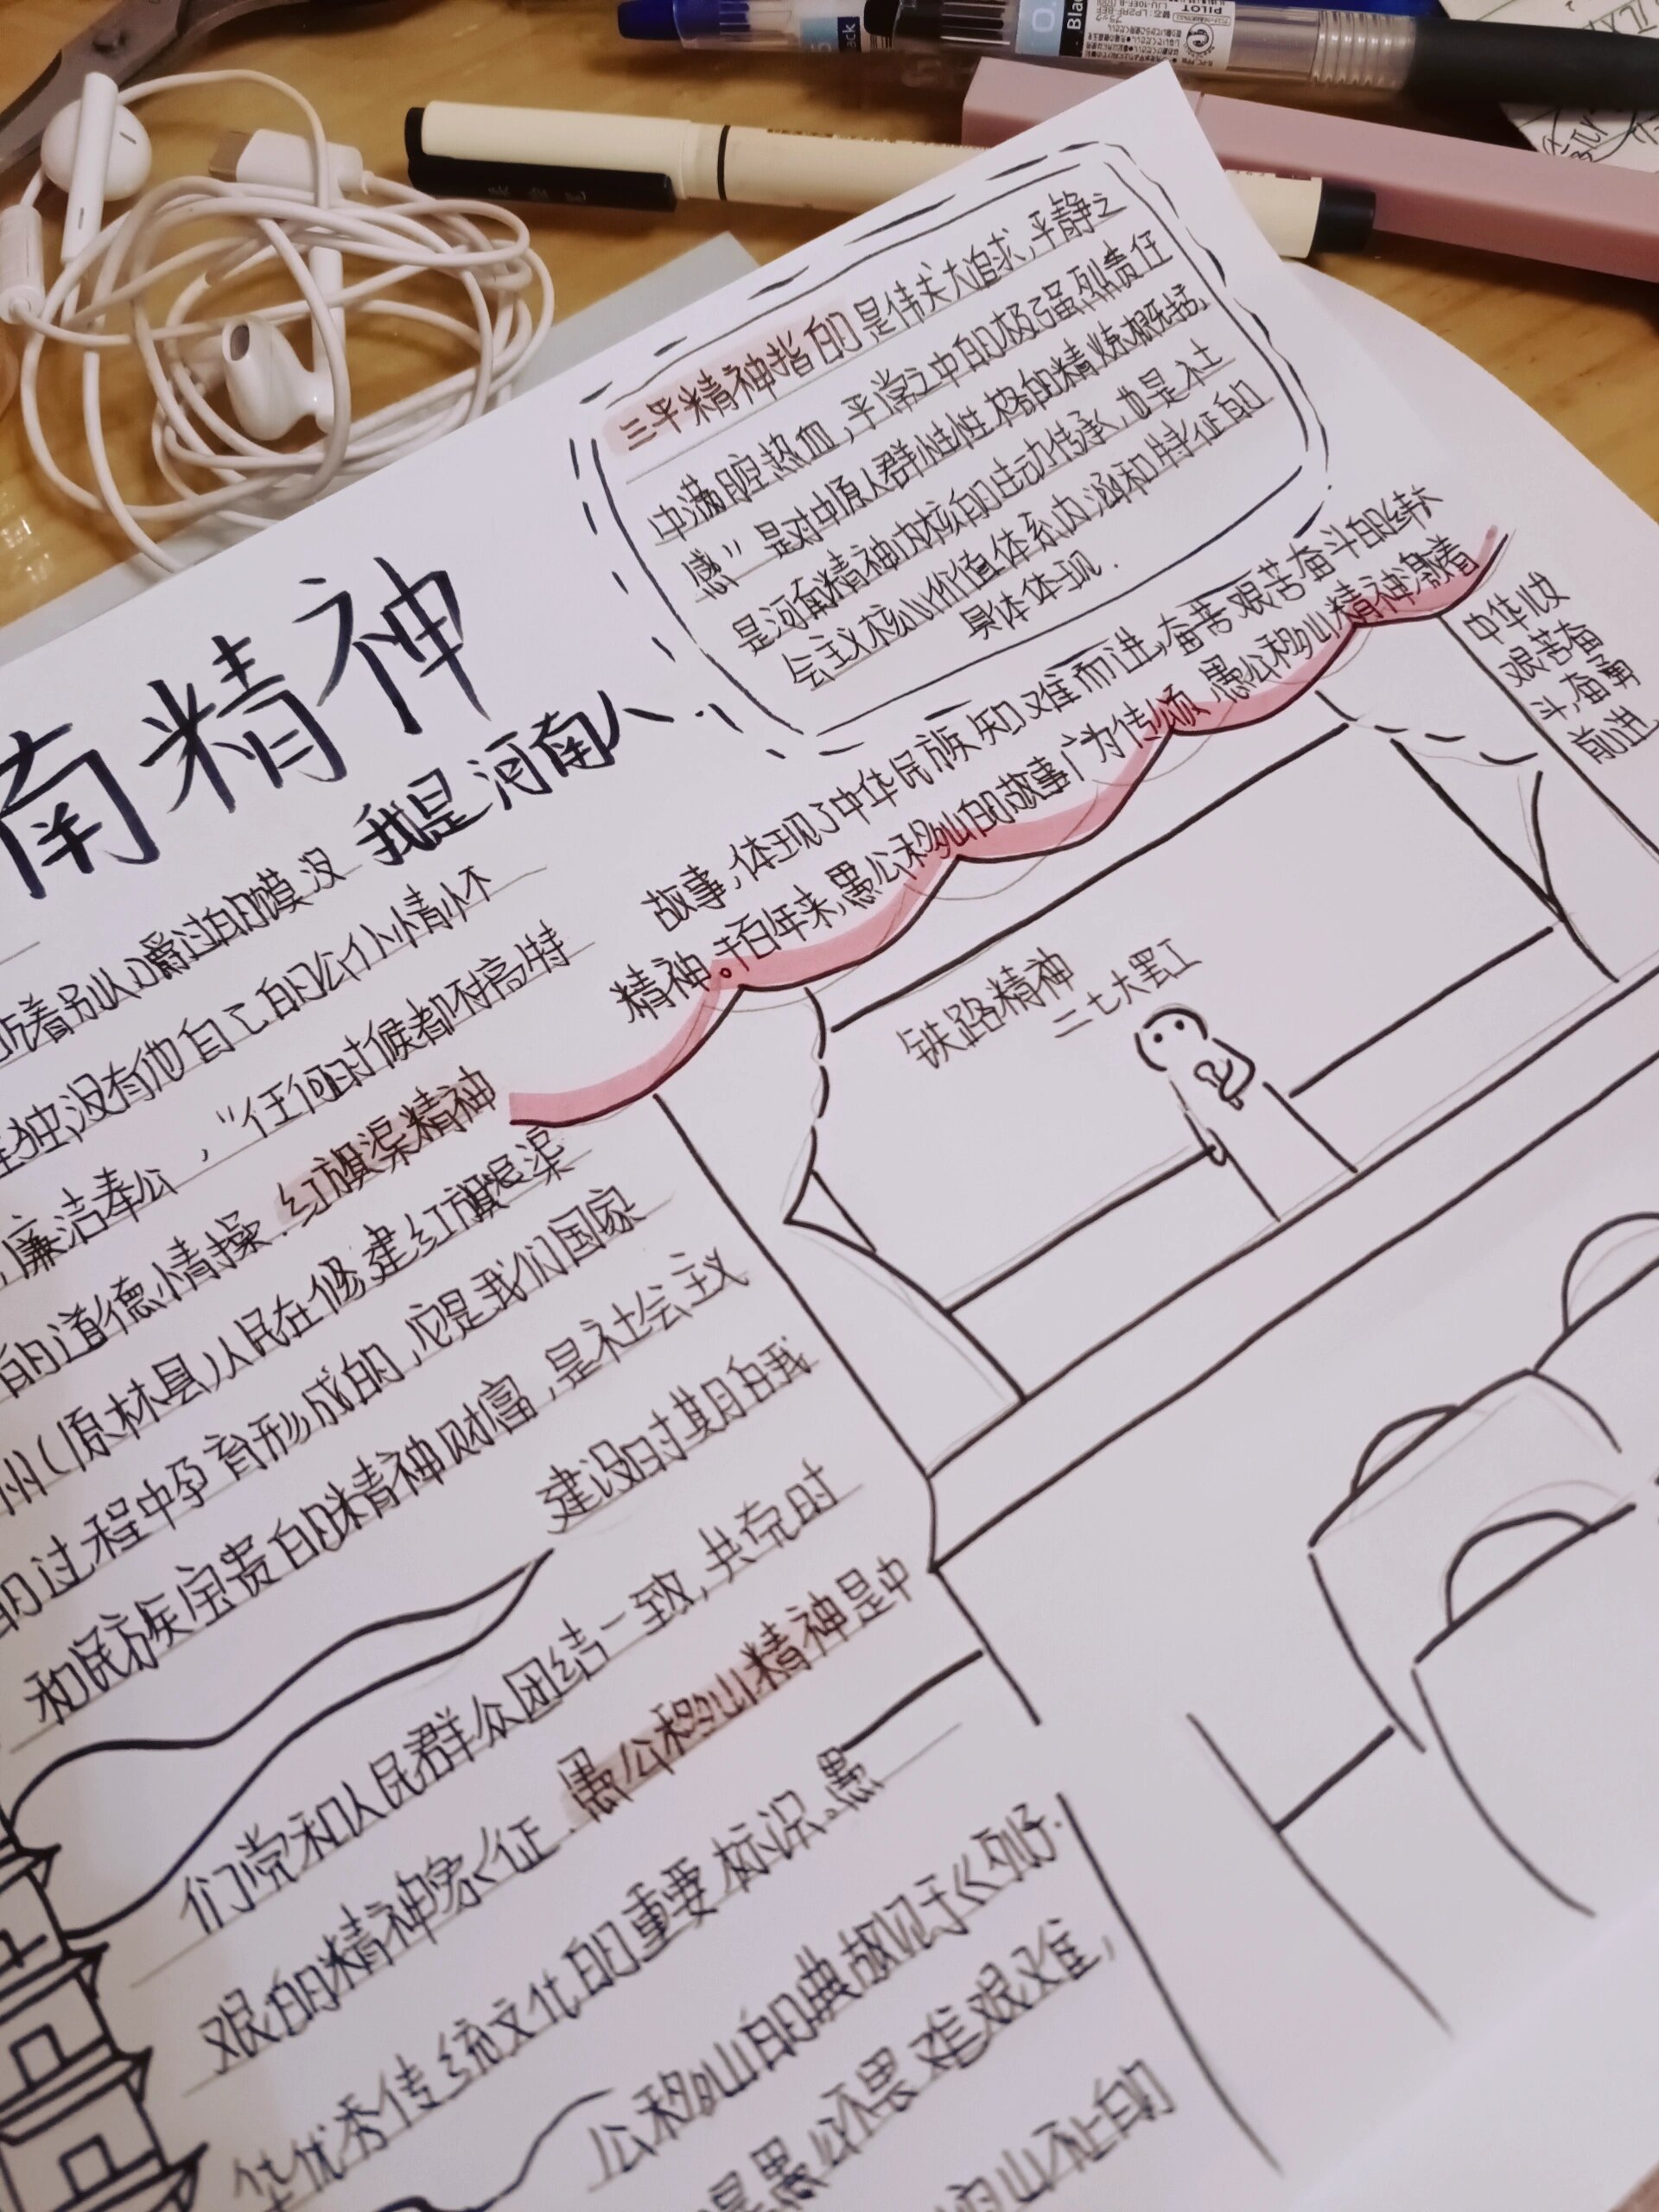 PILOT
三平精神指的是伟大追求,平静之
中满腔热血,平常之中的极强烈责任
感" 是对中原人群性性格的精炼概括,
是河南精神内核的生动传承,也是社
会主义核心价值体系内涵和特征的
具体体现.
南精神
我是河南人
故事,体现了中华民族知难而进,奋苦艰苦奋斗的伟大
精神。千百年来,愚公移山的故事广为传颂 愚公移山精神激着
中华儿女
艰苦奋
斗,奋勇
前进
铁路精神
二七大罢工
着别人嚼过的馍没
独,没有他自己的公仆情怀
廉洁奉公,"任何时候都不搞特
的道德情操.红旗渠精神
州(原林县)人民在修建红旗渠
的过程中孕育形成的,它是我们国家
和民族宝贵的精神财富,是社会主义
建设时期自我
们党和人民群众团结一致,共克时
艰的精神象征.愚公移山精神是中
华优秀传统文化的重要标识。愚
公移山的典故见于《列子.
是愚公不畏难艰难,
山不止的